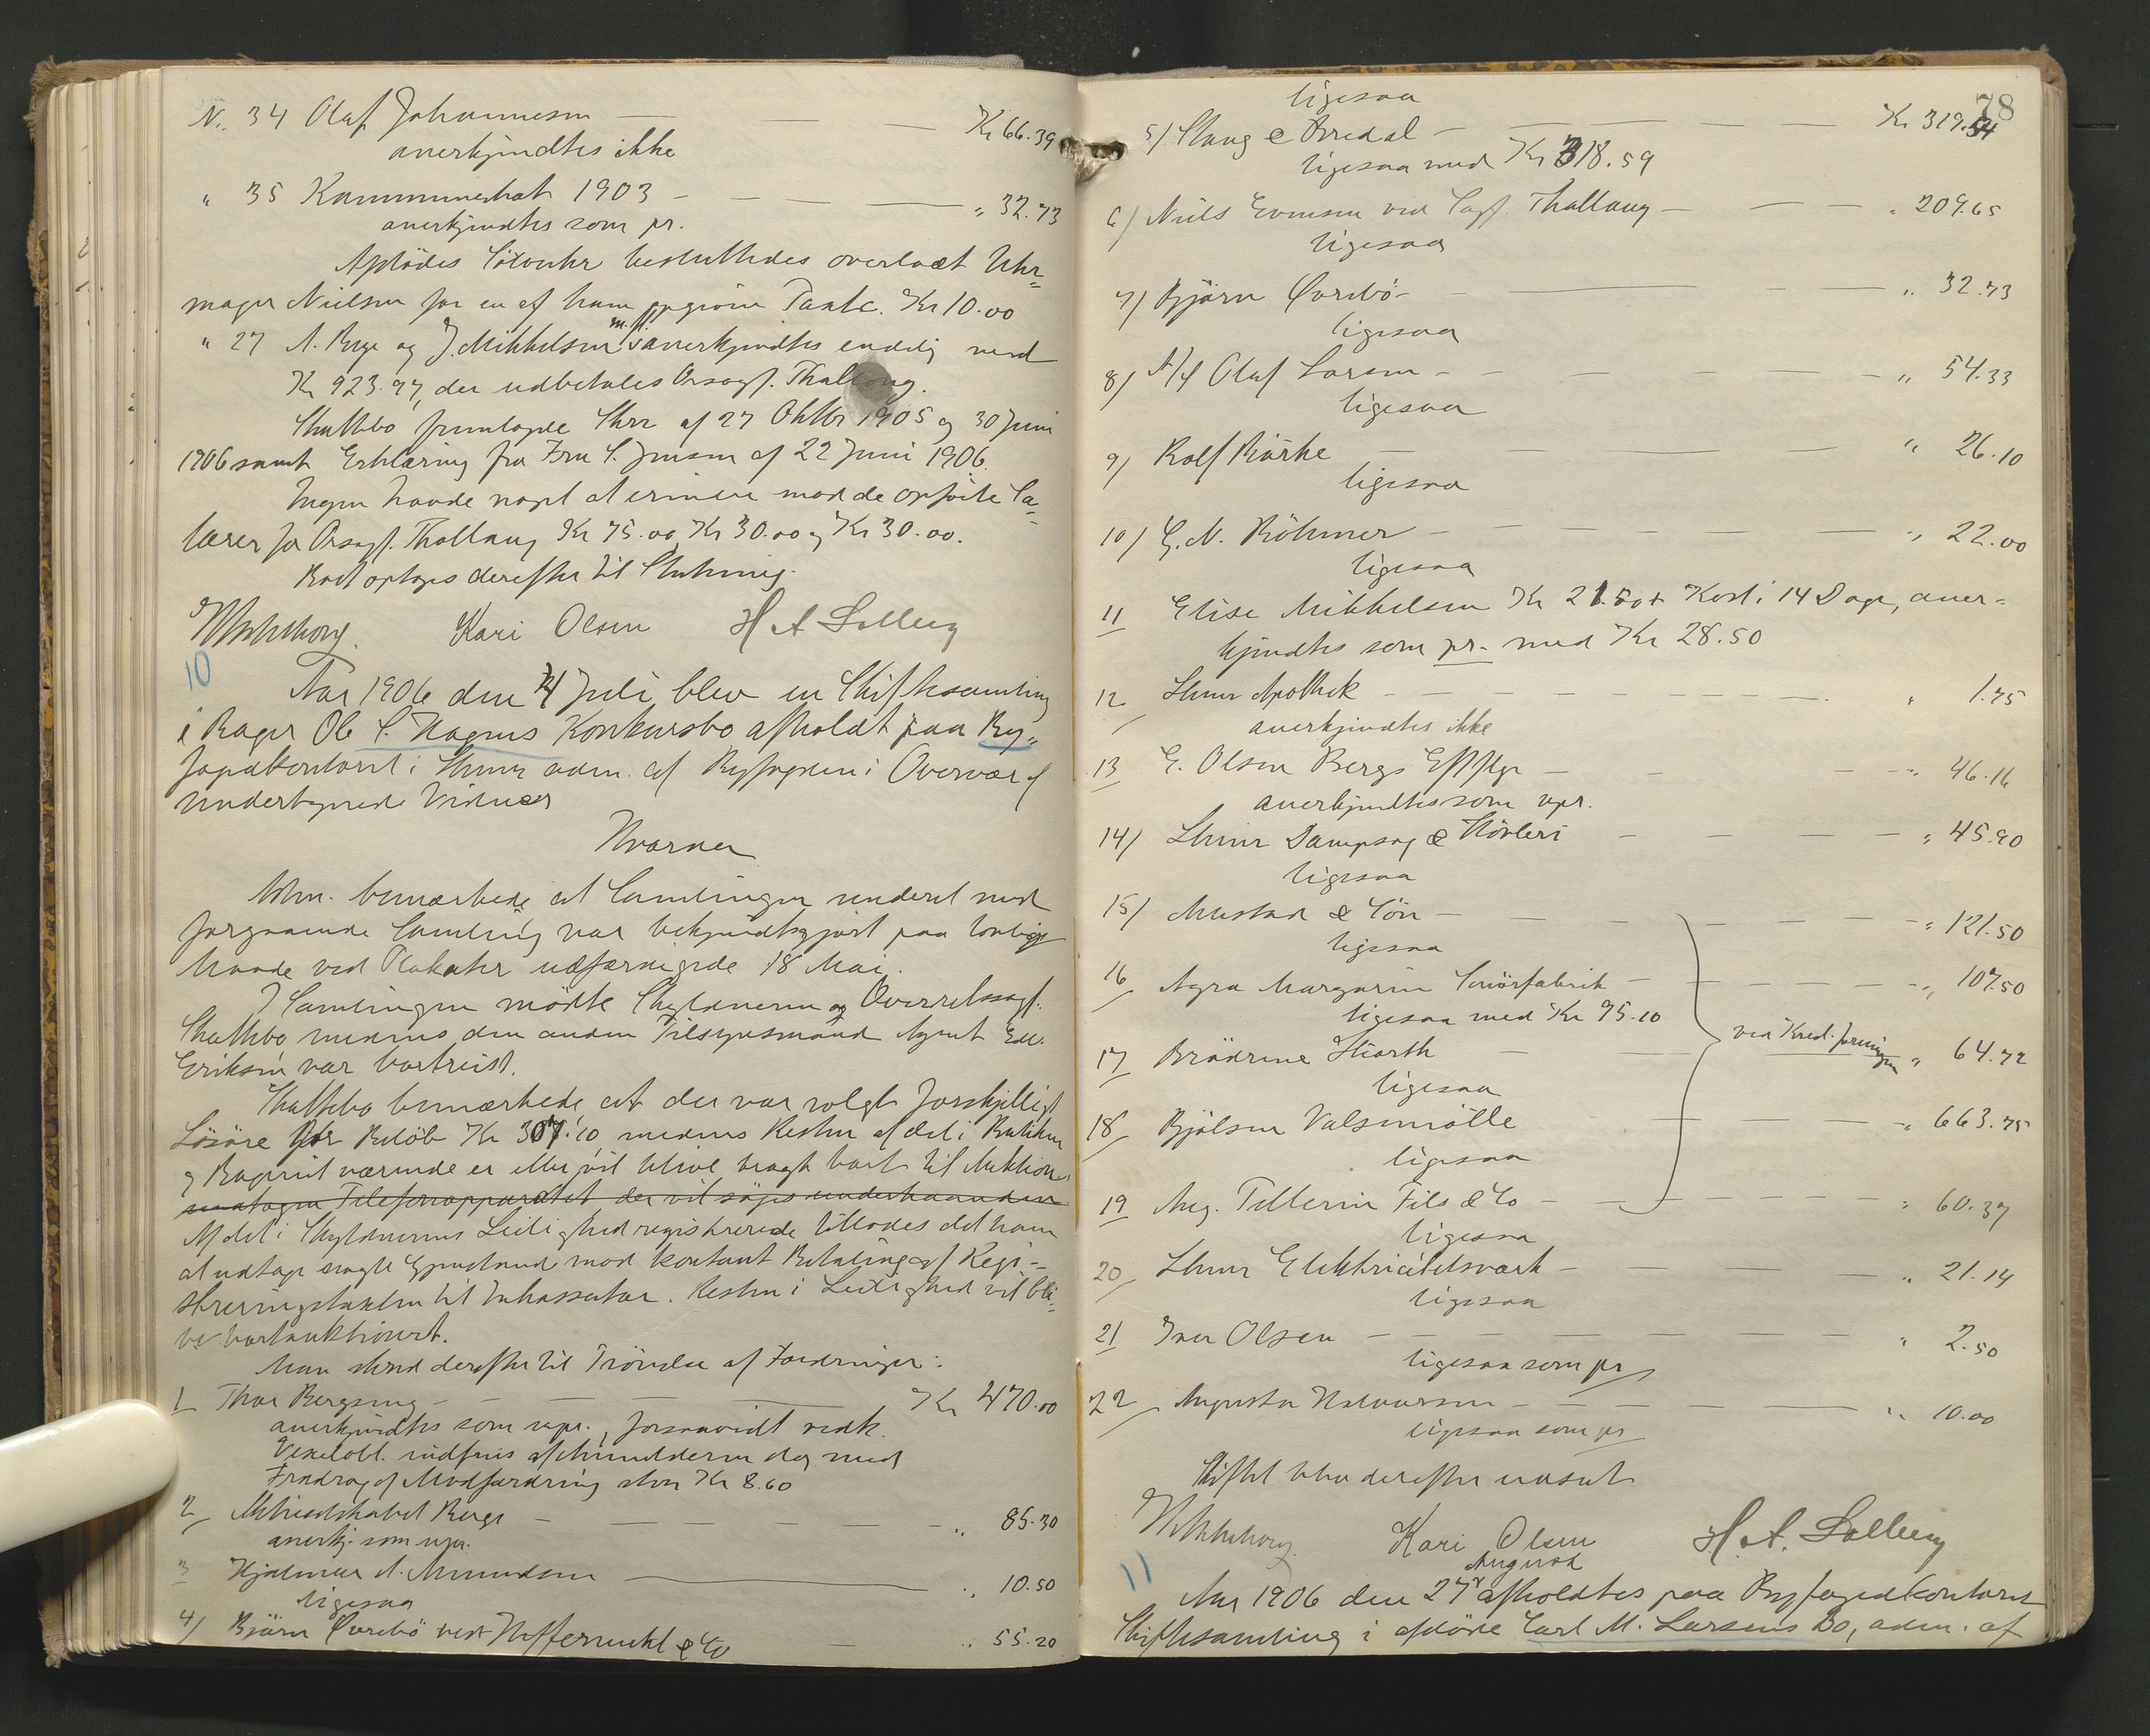 N. 34 Olaf Johannesen — Kr 66.39
anerkjendtes ikke
" 35 Kommuneskat 1903 — " 32.73
anerkjendtes som pr.
Afdödes Sölvuhr besluttedes overladt Uhr=
mager Nielsen for en af ham Taxt Kr 10.00
" 27 A. Berge og J. Mikkelsen m. fl. anerkjendtes endelig med
Kr 923.97, der udbetales Orsagf. Thallaug.
fremlagde Skr. af 27 Oktbr 1905 og 30 Juni
1906 samt Erklæring fra Fru S. Jensen af 22 Juni 1906.
Ingen havde noget at erindre mod de opförte Sa=
lærer for Orsagf. Thallaug Kr 75.00, Kr 30.00 og Kr 30.00.
Boet optoges derefter til Slutning.
Kari Olsen H A Solberg
10
Aar 1906 den 4 Juli blev en Skiftesamling
i Bager Ole S. Hagens Konkursbo afholdt paa By=
fogedkontoret i Lhmr adm. af Byfogden i Overvær af
undertegnede Vidner
Hvorved
Adm. bemærkede at Samlingen under et med
foregaaende Samling var bekjendtgjort paa lovlig
Maade ved Plakater udfærdigede 18 Mai.
I Samlingen mödte Skyldneren og Overretssagf.
medens den anden Tilsynsmand Agent Edv.
Eriksen var bortreist.
bemærkede, at der var solgt forskjelligt
Lösöre for Belöb Kr 307.10 medens Resten af det i Butiken
og Bageriet værende er eller vil blive bragt bort til Auktion
undtagen Telefonapparatet der vil söges underhaanden
Af det i Skyldnerens Leilighed registrerede tillodes det ham
at udtage Gjenstande mod kontant Betaling af Regi=
streringstaxten til Inkassator. Resten i Leilighed vil bli=
ve bortauktioneret.
Man skred derefter til Prövelse af Fordringer:
1 Thor Bergseng — Kr 470.00
anerkjendtes som upr., forsaavidt vedk.
Vexelobl. indfries af dog med
Fradrag af Modfordring stor Kr 8.60
2 Aktieselskabet Berge — " 85.30
anerkj. som upr.
3 Hjalmar A. Amundsen — " 10.50
ligesaa
4/ Björn Övrebö ved & Co — " 55.20
78
ligesaa
5/ Stang & Bredal — Kr 319.54
ligesaa med Kr 318.59
6/ Niels Evensen ved Sagf. Thallaug — " 209.65
ligesaa
7/ Björn Övrebö — " 32.73
ligesaa
8/ A/S Olaf Larsen — " 54.33
ligesaa
9/ Rolf Bärke — " 26.10
ligesaa
10/ G. N. Böhmer — " 22.00
ligesaa
11 Elise Mikkelsen Kr 21.50 + Kost i 14 Dage, aner=
kjendtes som pr. med Kr 28.50
12 Lhmr Apothek — " 1.75
anerkjendtes ikke
13 E. Olsen Bergs Eftflgr — " 46.16
anerkjendtes som upr.
14/ Lhmr Dampsag & Hövleri — " 45.90
ligesaa
15/ Mustad & Sön — " 121.50
ligesaa
16 Agra Margarin Smörfabrik — " 107.50
ligesaa med Kr 95.10
17 Brödrene Hiorth — ved Kred. foreningen " 64.72
ligesaa
18 Bjölsen Valsemölle — " 663.75
ligesaa
19 Aug. Pellerin Fils & Co — " 60.37
ligesaa
20 Lhmr Elektricitetsværk — " 21.14
ligesaa
21 Iver Olsen — " 2.50
ligesaa som pr
22 Augusta Halvorsen — " 10.00
ligesaa som pr
Skiftet blev derefter udsat
Kari Olsen H. A. Solberg
11
August
Aar 1906 den 27 afholdtes paa Byfogedkontoret
Skiftesamling i afdöde Carl M. Larsens Bo, adm. af